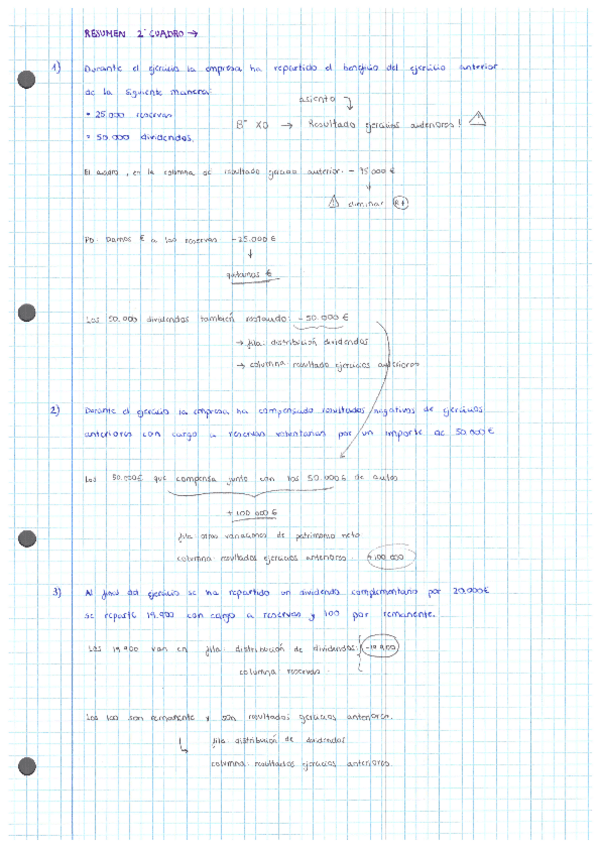 RESUMEN 2º CUADRO →
1) Durante el ejercicio la empresa ha repartido el beneficio del ejercicio anterior
de la siguiente manera:
• 25.000 reservas
• 50.000 dividendos.
asiento
Bº XO → Resultado ejercicios anteriores!
El asiento, en la columna de resultado ejercicio anterior: - 75'000 €
eliminar
PD. Damos € a las reservas -25.000 €
quitamos €
Los 50.000 dividendos también restando: -50.000 €
→ fila: distribución dividendos
→ columna: resultado ejercicios anteriores
2) Durante el ejercicio la empresa ha compensado resultados negativos de ejercicios
anteriores con cargo a reservas voluntarias por un importe de 50.000€
Los 50.000€ que compensa junto con los 50.000€ de antes
+ 100.000 €
fila otras variaciones de patrimonio neto
columna resultados ejercicios anteriores +100.000
3) Al final del ejercicio se ha repartido un dividendo complementario por 20.000€
se reparte 19.900 con cargo a reservas y 100 por remanente.
Los 19.900 van en fila: distribución de dividendos: -19.900
columna reservas
Los 100 son remanente y son resultados ejercicios anteriores.
fila distribución de dividendos
columna: resultados ejercicios anteriores.